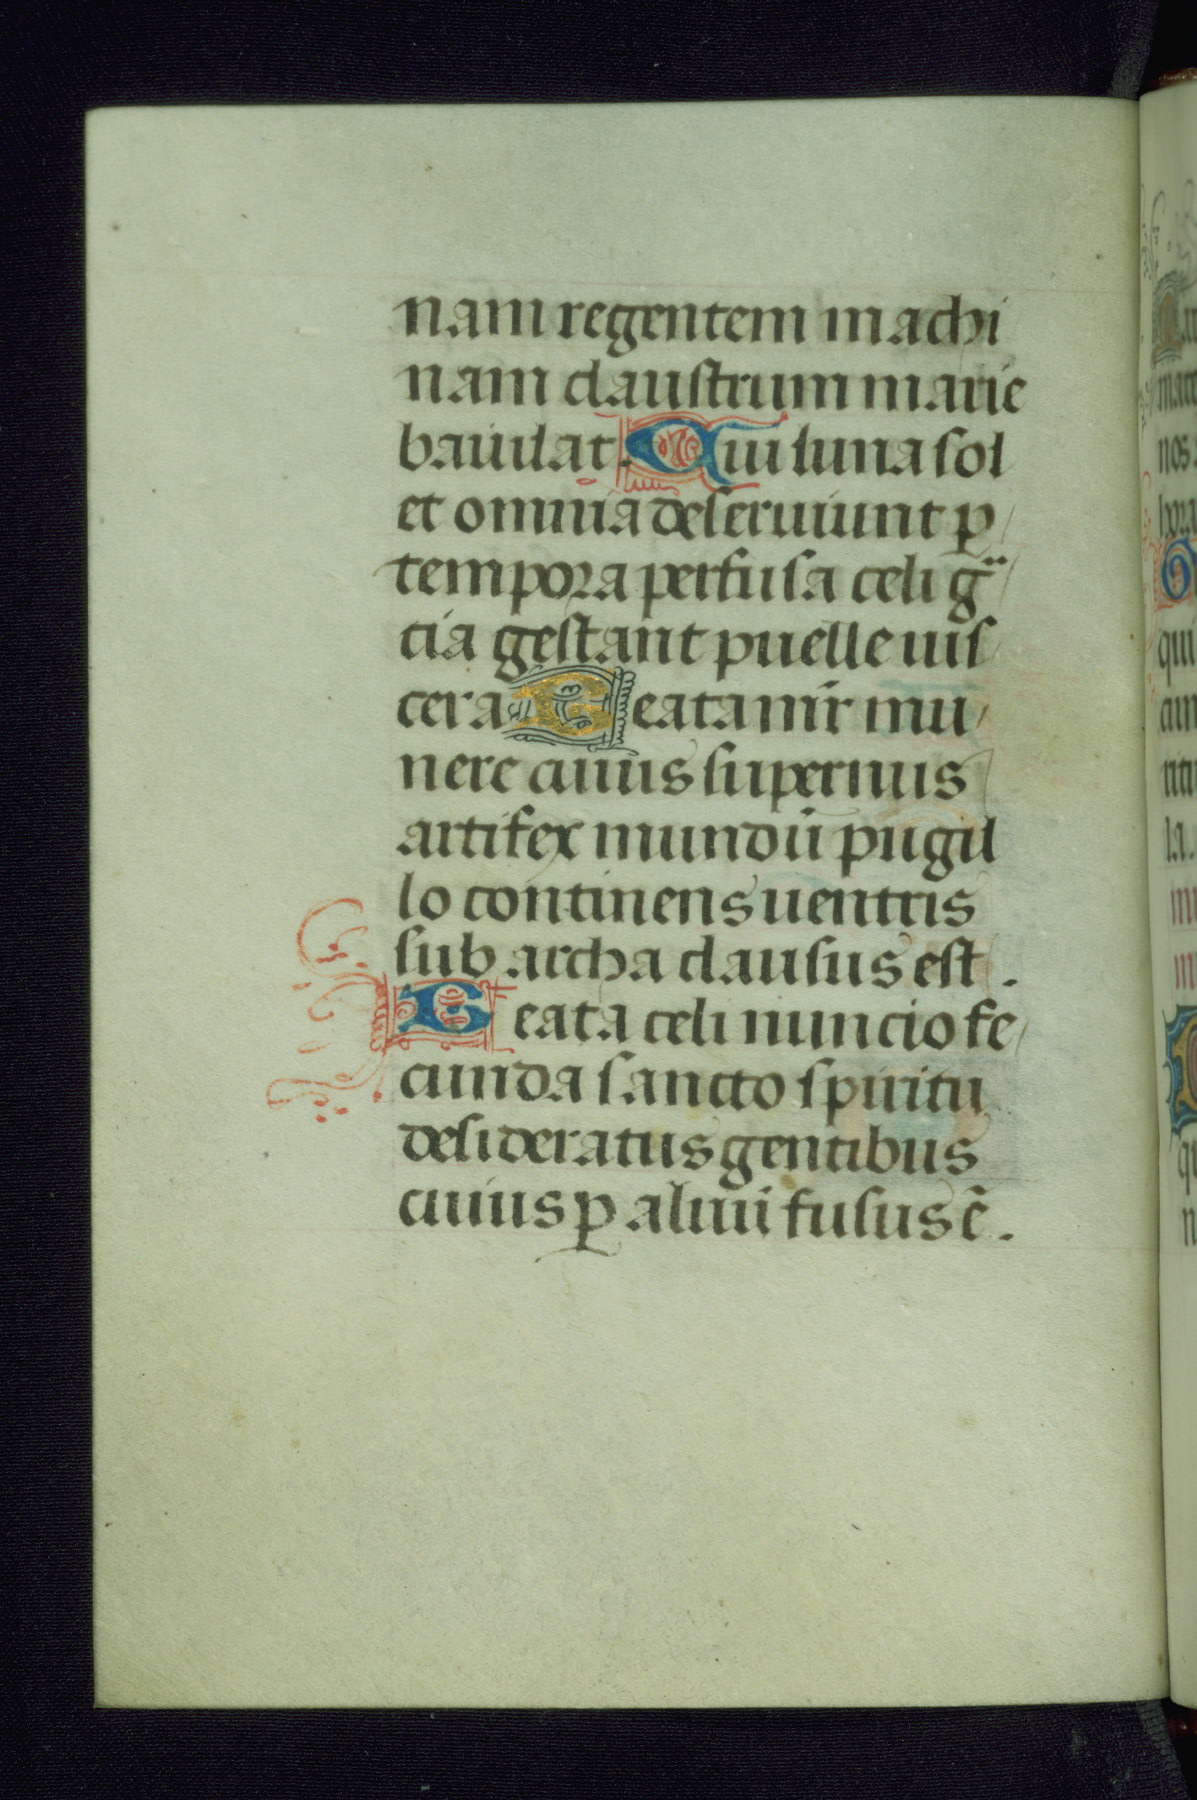 nam regentem machi
nam claustrum marie
baiulat. Cui luna sol
et omnia deseruiunt p̱
tempora perfusa celi g̈
cia gestant puelle uis
cera Beata mr̄ mu
nere cuius supernus
artifex mundū pugil
lo continens uentris
sub archa clausus est .
Beata celi nuncio fe
cunda sancto spiritu
desideratus gentibus
cuius p̱ aluū fusus ē .